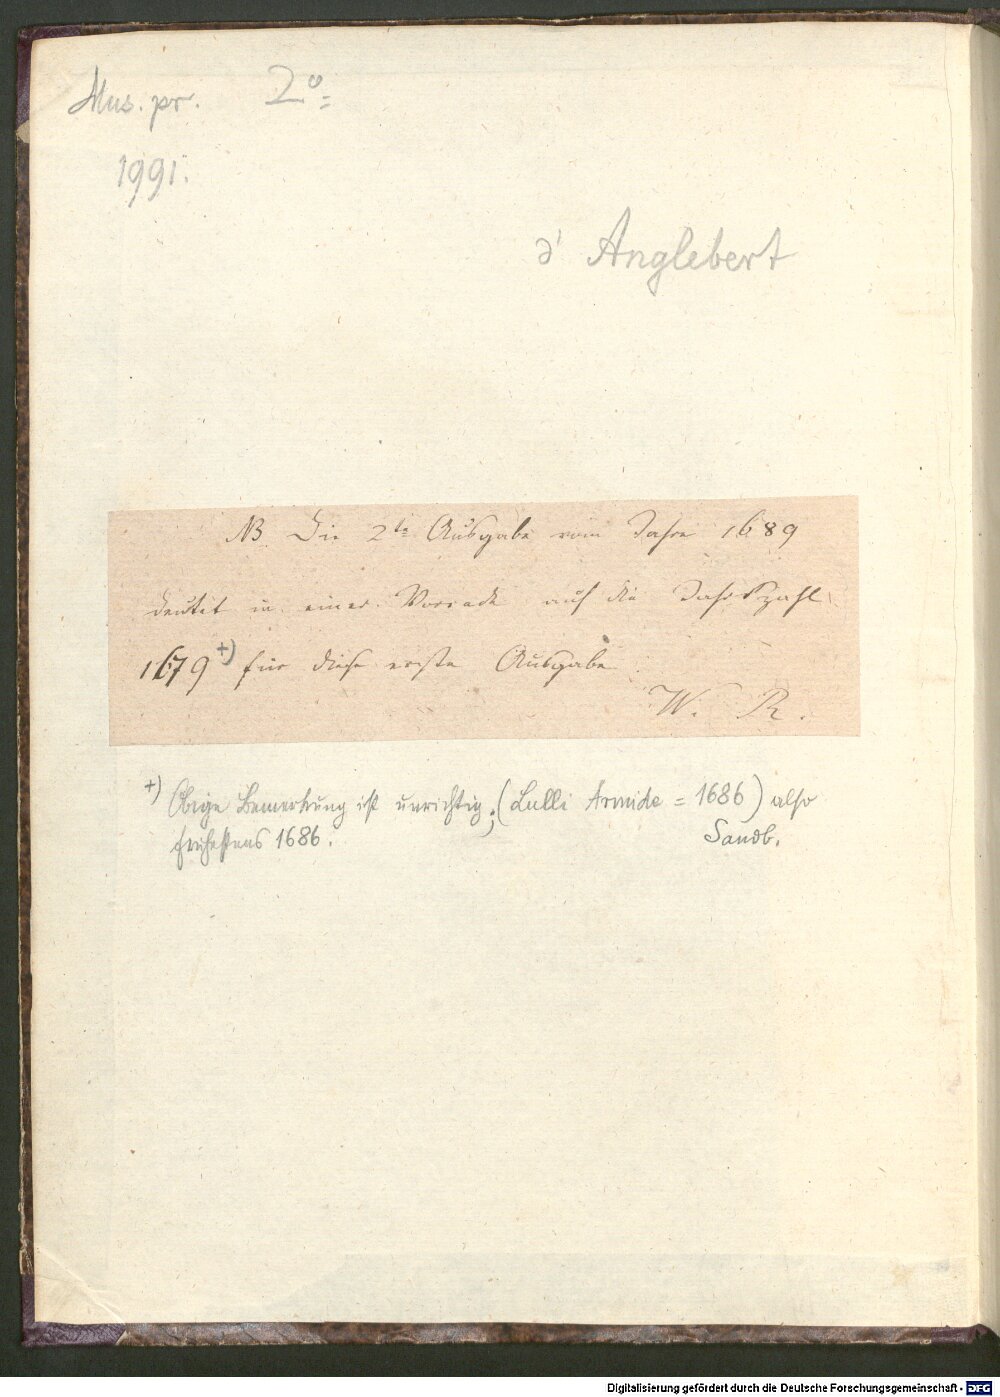 Mus. pr. 2°=
1991.
d'Anglebert
NB Die 2te Ausgabe vom Jahre 1689
deutet in einer Vorrede auf die Jahrszahl
1679 +) für diese erste Ausgabe
W. R.
+) Obige Bemerkung ist unrichtig; (Lulli Armide = 1686) also
frühestens 1686.
Sandb.
Digitalisierung gefördert durch die Deutsche Forschungsgemeinschaft - DFG